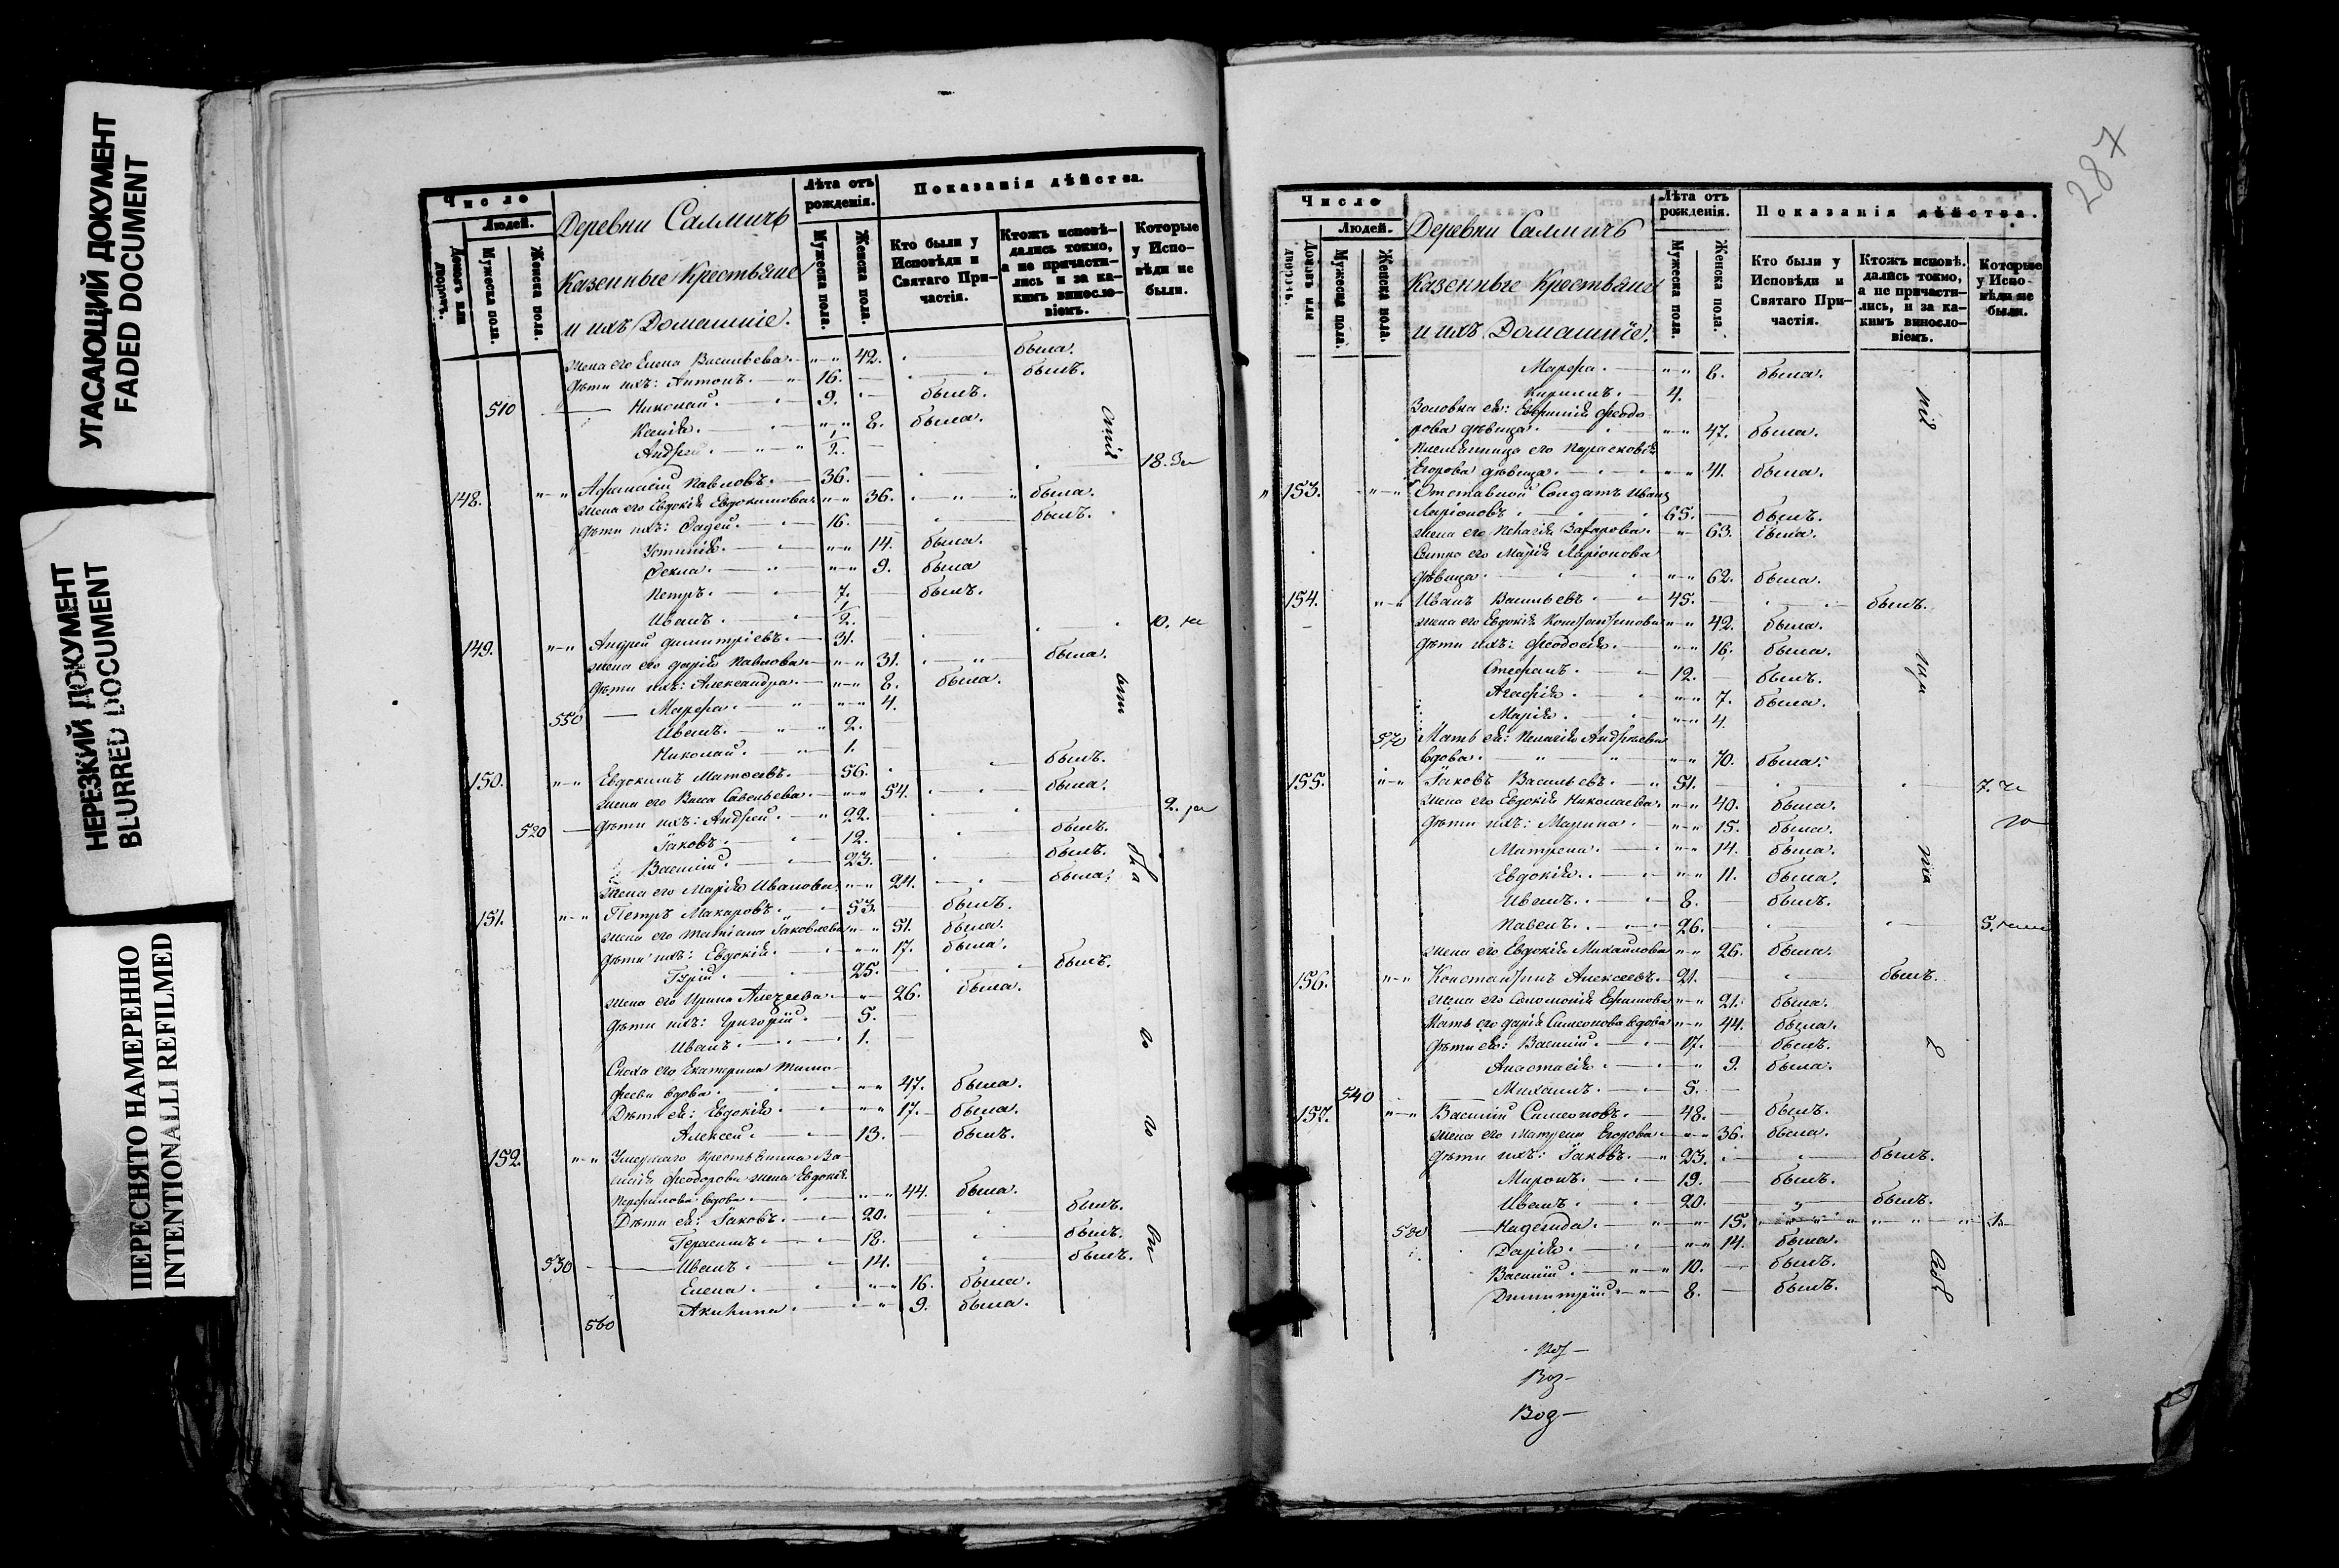 УГАСАЮЩИЙ ДОКУМЕНТ
FADED DOCUMENT
НЕРЕЗКИЙ ДОКУМЕНТ
BLURRED DOCUMENT
ПЕРЕСНЯТО НАМЕРЕННО
INTENTIONALLI REFILMED
Число
Людей.
Домовъ или дворовъ.
Мужеска пола.
Женска пола.
Деревни Саммичъ
Казенные Крестьяне
и ихъ Домашніе.
Лѣта отъ рожденія.
Мужеска пола.
Женска пола.
Показанія дѣйства.
Кто были у Исповѣди и Святаго При-частія.
Ктожъ исповѣ-дались токмо, а не причасти-лись и за ка-кимъ винсло-віемъ.
Которые у Испо-вѣди не были.
жена его Елена Васильева. 42. была.
дѣти ихъ: Антонъ. 16. былъ.
510 Николай. 9. былъ.
Ксенія. 8. была.
Андрей. 1/2.
148. Афанасій Павловъ. 36. 18.
жена его Евдокія Евдокимова 36. была.
дѣти ихъ: Фадей. 16. былъ.
Устинія. 14. была.
Фекла. 9. была
Петръ. 7. былъ.
Иванъ. 1/2.
149. Андрей Димитріевъ. 31. 10.
жена его Дарія Павлова 31. была.
дѣти ихъ: Александра. 8. была.
550 Марфа. 4.
Иванъ. 2.
Николай. 1.
150. Евдокимъ Матоеевъ. 56. былъ.
жена его Васса Савельева. 54. была.
520 дѣти ихъ: Андрей. 22. 2.
Іаковъ. 12. былъ.
Василій. 23. былъ.
жена его Марія Иванова 24. была.
151. Петръ Макаровъ. 53. былъ.
жена его Татіана Іаковлева 51. была.
дѣти ихъ: Евдокія. 17. была.
Гурій. 25. былъ.
жена его Ирина Алексеева 26. была.
дѣти ихъ: Григорій. 5.
Иванъ. 1.
Сноха его Екатерина Тимо-
феева вдова. 47. была.
Дѣти ея: Евдокія. 17. была.
Алексей. 13. былъ.
152. Умершаго крестьянина Ва-
силія Феодорова жена Евдокія
Перфилова вдова. 44. была.
Дѣти ея: Іаковъ. 20. былъ.
Герасимъ. 18. былъ.
530 Иванъ. 14. былъ.
Елена. 16. была.
Акилина. 9. была.
560
287
Число
Людей.
Домовъ или дворовъ.
Мужеска пола.
Женска пола.
Деревни Саммичъ
Казенные Крестьяне
и ихъ Домашніе.
Лѣта отъ рожденія.
Мужеска пола.
Женска пола.
Показанія дѣйства.
Кто были у Исповѣди и Святаго При-частія.
Ктожъ исповѣ-дались токмо, а не причасти-лись, и за ка-кимъ винсло-віемъ.
Которые у Испо-вѣди не были.
Марфа. 6. была.
Кириллъ. 4.
Золовка ея: Евфимія Феодо-
рова дѣвица. 47. была.
Племянница его Парасковія
Егорова дѣвица. 41. была.
153. Отставной Солдатъ Иванъ
Ларіоновъ 65. былъ.
жена его Пелагія Захарова 63. была.
Сестра его Марія Ларіонова
дѣвица. 62. была.
154. Иванъ Васильевъ 45. былъ.
жена его Евдокія Константинова 42. была.
дѣти ихъ: Феодосія. 16. была.
Стефанъ. 12. былъ.
Агафія. 7. была.
Марія. 4.
570 Мать ея: Пелагія Андреева
вдова. 70. была.
155. Іаковъ Васильевъ. 51. 7.
жена его Евдокія Николаева. 40. была.
дѣти ихъ: Марина. 15. была.
Матрена. 14. была.
Евдокія. 11. была.
Иванъ. 8. былъ.
Павелъ. 26. 5.
жена его Евдокія Михайлова 26. была.
156. Константинъ Алексеевъ. 21. былъ.
жена его Соломонія Ефимова 21. была.
Мать его Дарія Симеонова вдова 44. была.
дѣти ея: Василій. 17. былъ.
Анастасія. 9. была.
540 Михаилъ. 5.
157. Василій Симеоновъ. 48. былъ.
жена его Матрена Егорова 36. была.
дѣти ихъ: Іаковъ. 23. былъ.
Миронъ. 19. былъ.
Иванъ. 20. былъ.
580 Надежда. 15. 1.
Дарія. 14. была.
Василій. 10. былъ.
Димитрій. 8. былъ.